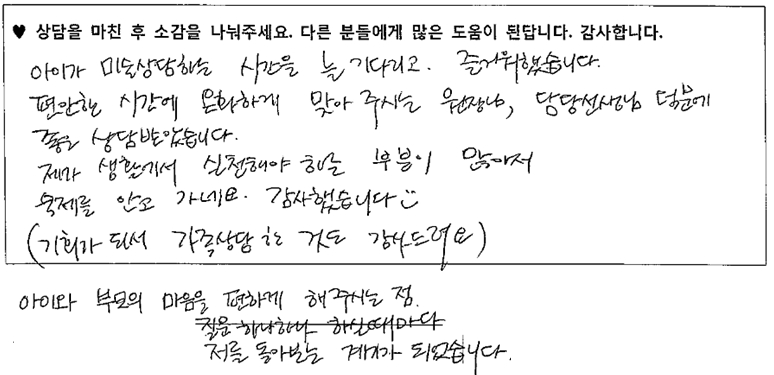 ♥ 상담을 마친 후 소감을 나눠주세요. 다른 분들에게 많은 도움이 된답니다. 감사합니다.
아이가 미술상담하는 시간을 늘 기다리고. 즐거워했습니다.
편안한 시간에 온화하게 맞아 주시는 원장님, 담당선생님 덕분에
좋은 상담받았습니다.
제가 생활에서 실천해야 하는 부분이 많아서
숙제를 안고 가네요. 감사했습니다
(기회가 되서 가족상담 한 것도 감사드려요)
아이와 부모의 마음을 편하게 해주시는 점.
질문 하나하나 하실때마다
저를 돌아보는 계기가 되었습니다.